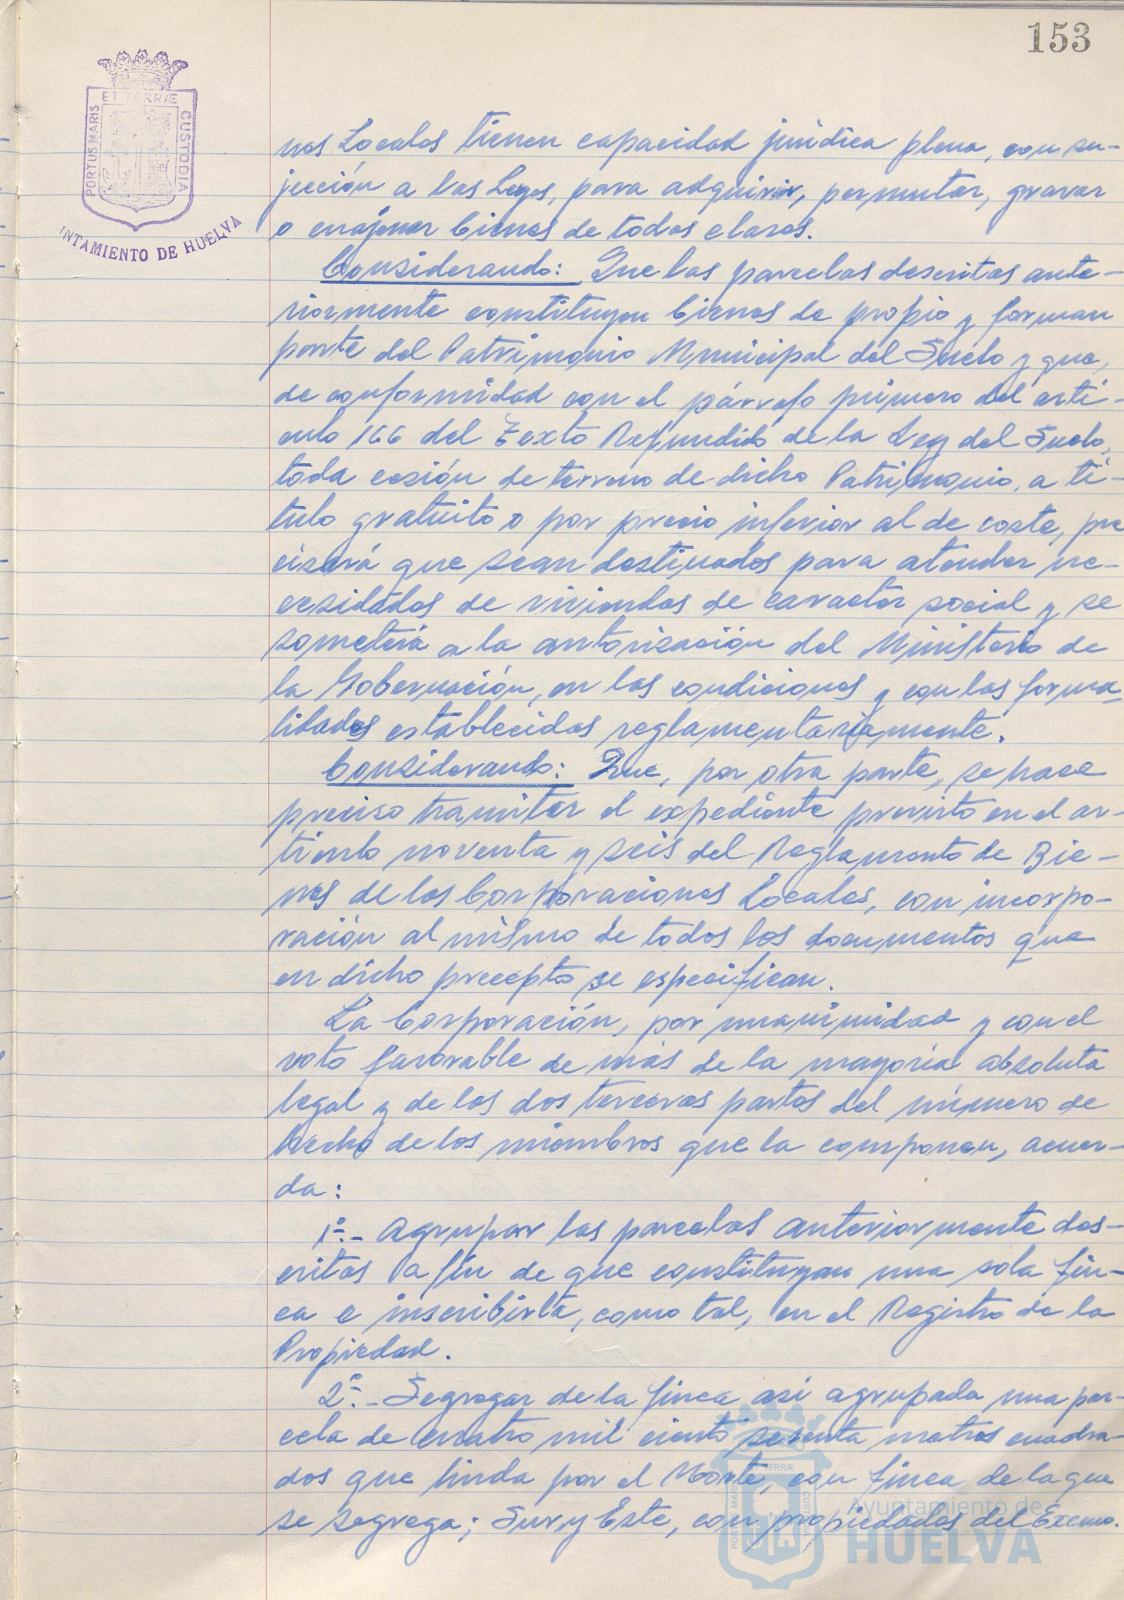 153
ET TERRÆ
PORTUS MARIS
CUSTODIA
NTAMIENTO DE HUELVA
nes Locales tienen capacidad jurídica plena, con su-
jección a las Leyes, para adquirir, permutar, gravar
o enajenar bienes de todas clases.
Considerando: Que las parcelas descritas ante-
riormente constituyen bienes de propio y forman
parte del Patrimonio Municipal del Suelo y que,
de conformidad con el párrafo primero del artí-
culo 166 del Texto Refundido de la Ley del Suelo,
toda cesión de terreno de dicho Patrimonio, a tí-
tulo gratuito o por precio inferior al de coste, pre
cisará que sean destinados para atender ne-
cesidades de viviendas de caracter social y se
someterá a la autorización del Ministerio de
la Gobernación, en las condiciones y con las forma-
lidades establecidas reglamentariamente.
Considerando: Que, por otra parte, se hace
preciso tramitar el expediente previsto en el ar-
tículo noventa y seis del Reglamento de Bie-
nes de las Corporaciones Locales, con incorpo-
ración al mismo de todos los documentos que
en dicho precepto se especifican.
La Corporación, por unanimidad y con el
voto favorable de más de la mayoría absoluta
legal y de las dos terceras partes del número de
hecho de los miembros que la componen, acuer-
da:
1º.- Agrupar las parcelas anteriormente des-
critas a fin de que constituyan una sola fin-
ca e inscribirla, como tal, en el Registro de la
Propiedad.
2º.- Segregar de la finca así agrupada una par-
cela de cuatro mil ciento sesenta metros cuadra-
dos que linda por el Norte, con finca de la que
se segrega; Sur y Este, con propiedades del Excmo.
Ayuntamiento de
HUELVA